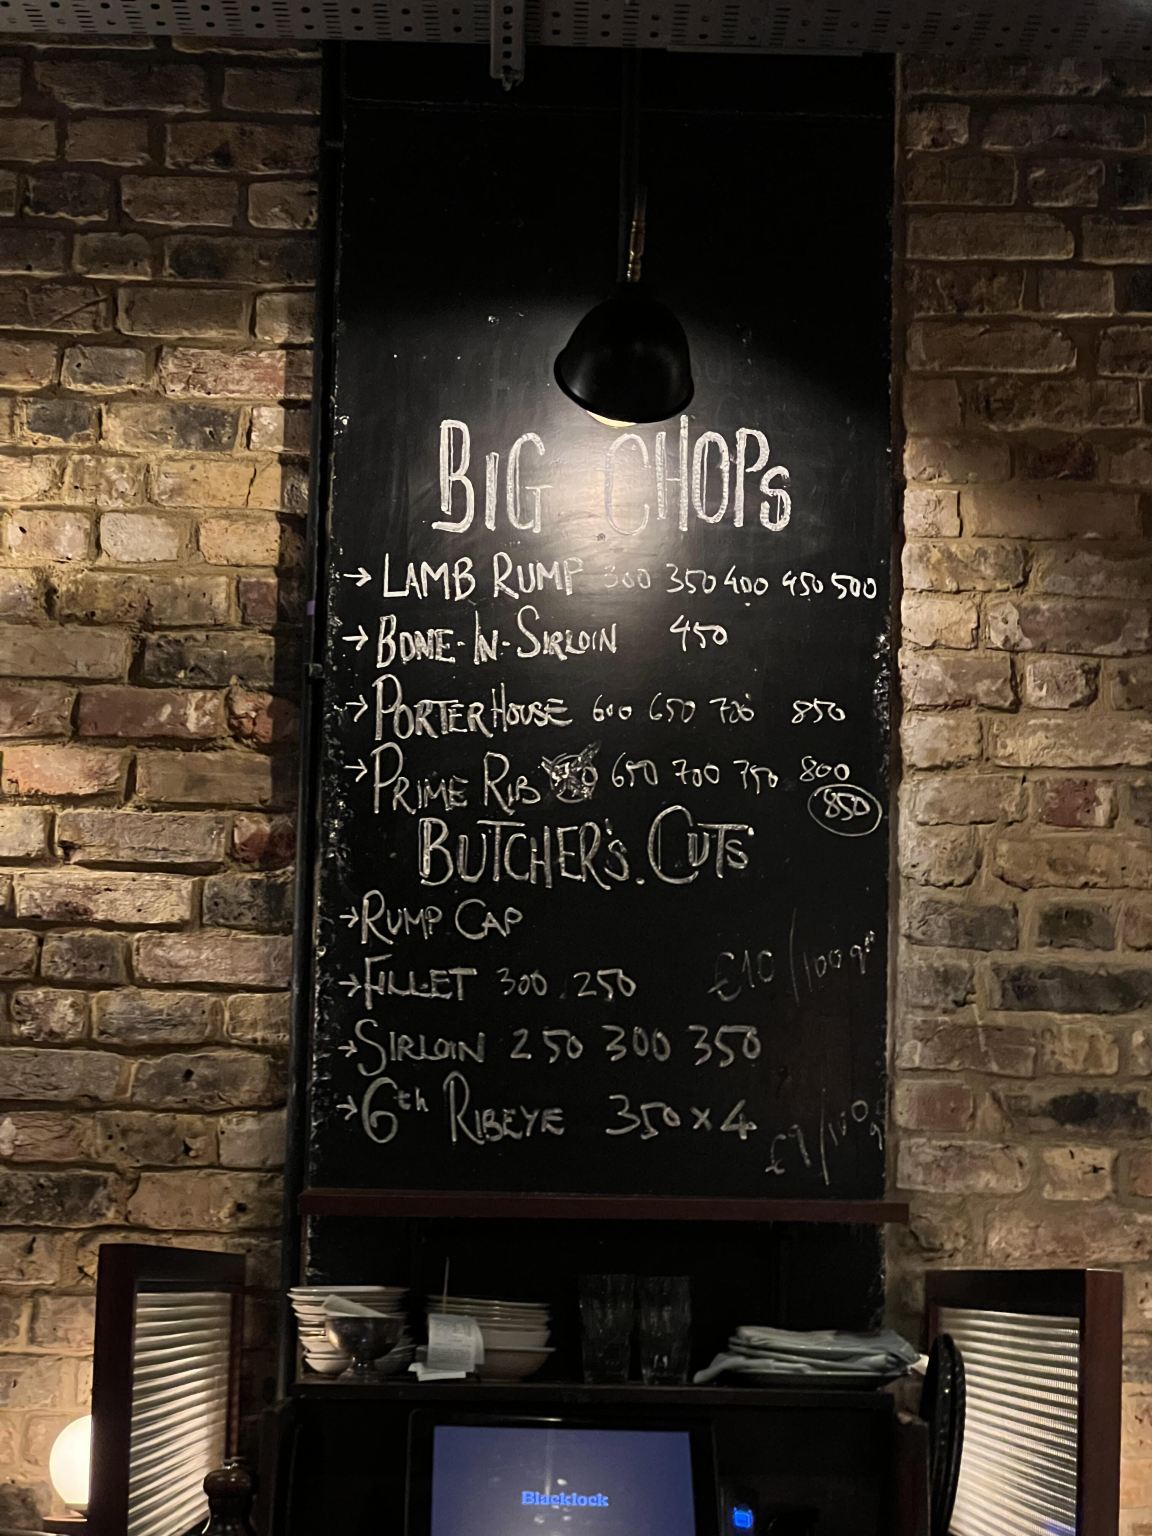 BIG CHOPS
→ LAMB RUMP 300 350 400 450 500
→ BONE-IN-SIRLOIN 450
→ PORTERHOUSE 600 650 700 850
→ PRIME RIB 650 700 750 800
850
BUTCHER'S. CUTS
→ RUMP CAP
→ FILLET 300 250 £10/100g
→ SIRLOIN 250 300 350
→ 6th RIBEYE 350 x 4 £9/100g
Blacklock